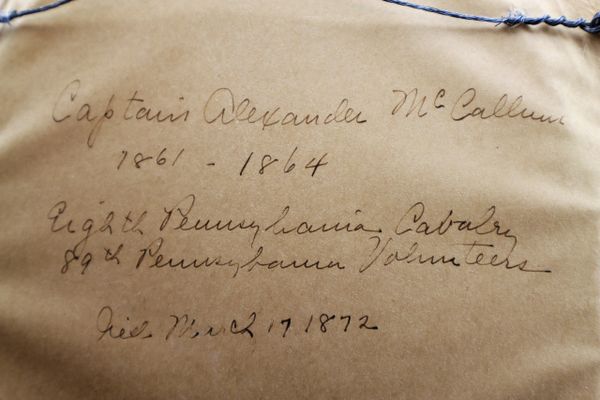 Captain Alexander McCallum
1861 - 1864
Eighth Pennsylvania Cavalry
89th Pennsylvania Volunteers
Died March 17 1872